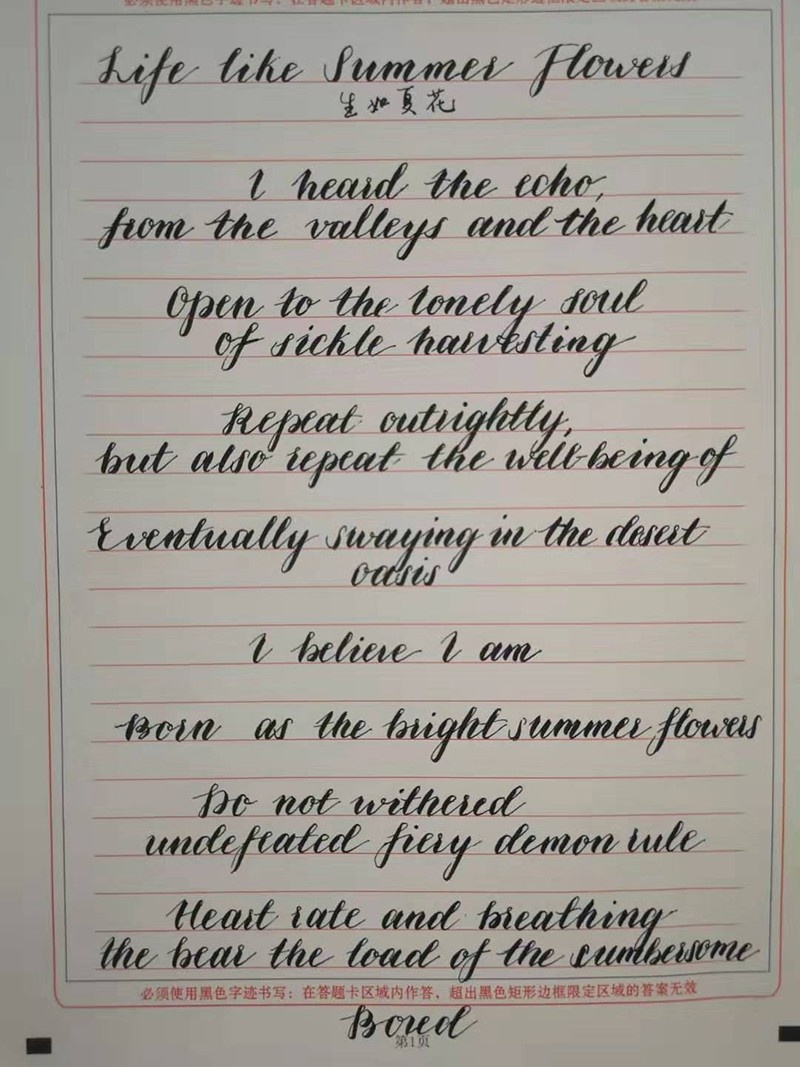 Life like Summer Flowers
生如夏花
I heard the echo,
from the valleys and the heart
Open to the lonely soul
of sickle harvesting
Repeat outrightly,
but also repeat the well-being of
Eventually swaying in the desert
oasis
I believe I am
Born as the bright summer flowers
Do not withered
undefeated fiery demon rule
Heart rate and breathing
the bear the load of the cumbersome
必须使用黑色字迹书写:在答题卡区域内作答,超出黑色矩形边框限定区域的答案无效
Bored
第1页